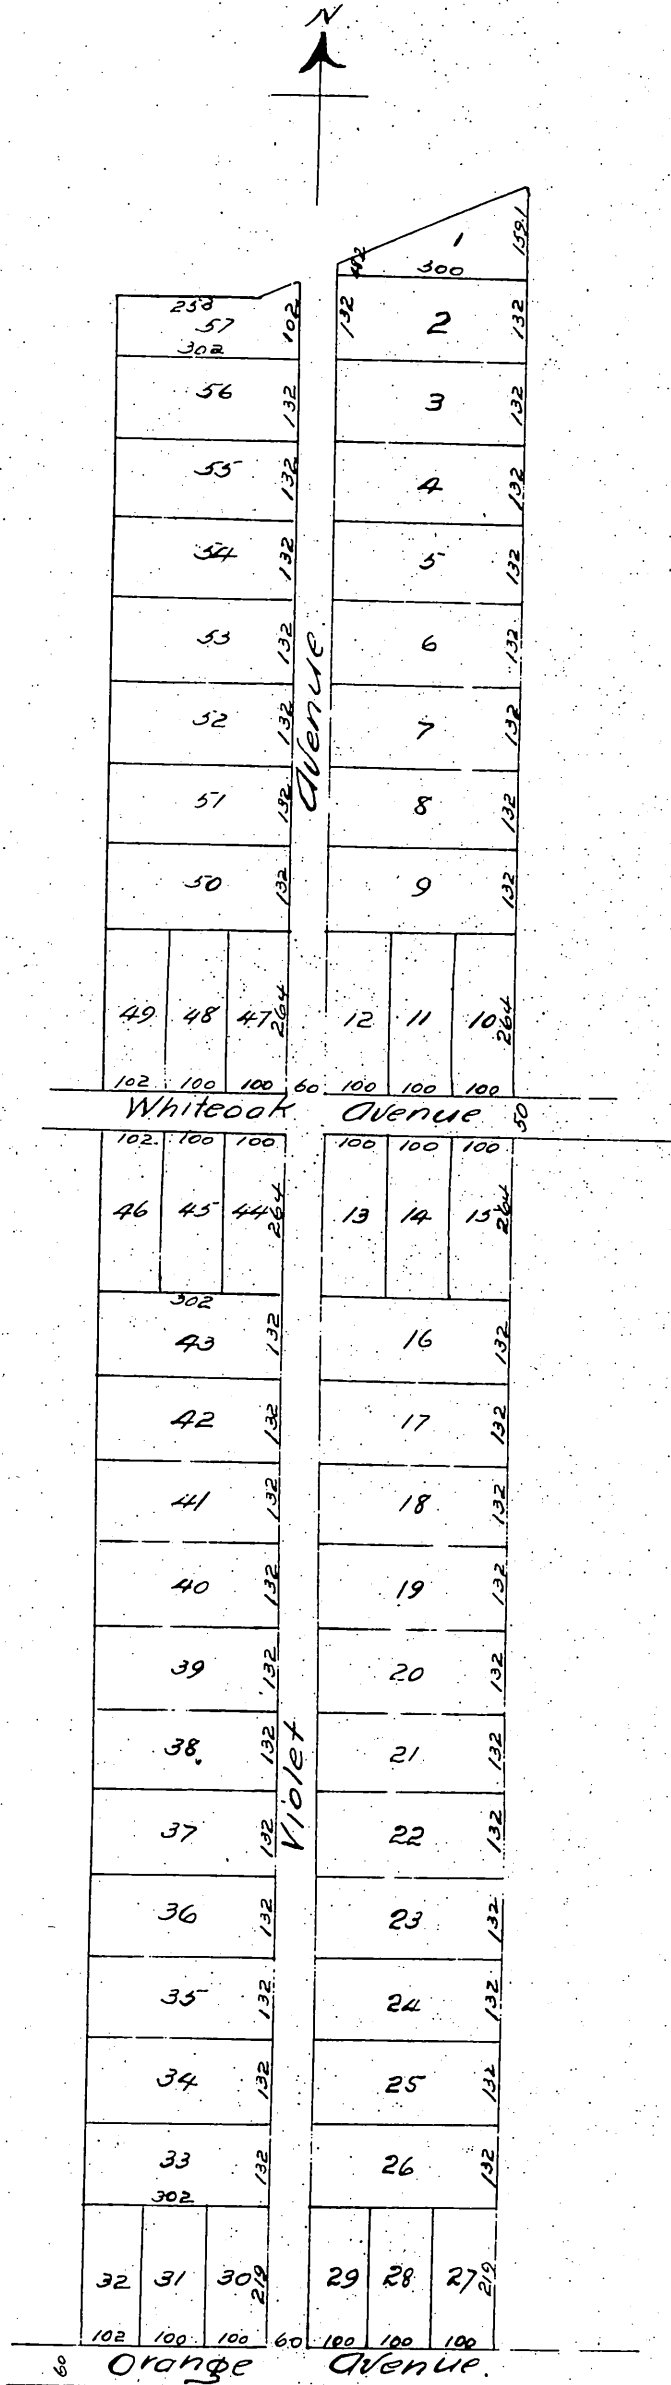 N
1 159.1
300
258 102 132 2 132
57
302
56 132 3 132
55 132 4 132
54 132 5 132
53 132 6 132
52 132 7 132
51 132 8 132
50 132 9 132
Avenue.
49 48 47 264 12 11 10 264
102 100 100 60 100 100 100
Whiteoak Avenue 50
102 100 100 100 100 100
46 45 44 264 13 14 15 264
302
43 132 16 132
42 132 17 132
41 132 18 132
40 132 19 132
39 132 20 132
38 132 21 132
Violet
37 132 22 132
36 132 23 132
35 132 24 132
34 132 25 132
33 132 26 132
302
32 31 30 219 29 28 27 219
102 100 100 60 100 100 100
60 Orange Avenue.